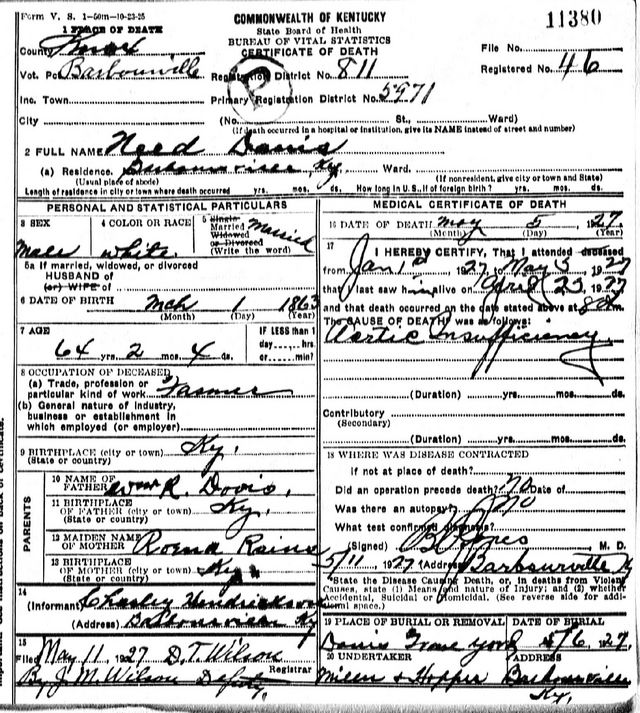 Form V. S. 1-50m-10-23-25
COMMONWEALTH OF KENTUCKY
11380
1 PLACE OF DEATH
State Board of Health
BUREAU OF VITAL STATISTICS
County Knox
CERTIFICATE OF DEATH
File No.
Vot. Pct Barbourville
Registration District No. 811
Registered No. 46
Inc. Town
Primary Registration District No. 5971
City
(No. St., Ward)
(If death occurred in a hospital or institution, give its NAME instead of street and number)
2 FULL NAME Need Davis
(a) Residence. Barbourville, Ky. Ward.
(Usual place of abode)
(If nonresident, give city or town and State)
Length of residence in city or town where death occurred yrs. mos. ds. How long in U.S., if of foreign birth? yrs. mos. ds.
PERSONAL AND STATISTICAL PARTICULARS
3 SEX
4 COLOR OR RACE
5 Single
Married
Widowed
or Divorced
(Write the word)
Married
Male white
5a If married, widowed, or divorced
HUSBAND of
(or) WIFE of
6 DATE OF BIRTH Mch 1 1863
(Month) (Day) (Year)
7 AGE
IF LESS than 1
day, hrs.
or min.
64 yrs. 2 mos. 4 ds.
8 OCCUPATION OF DECEASED
(a) Trade, profession or
particular kind of work Farmer
(b) General nature of industry,
business or establishment in
which employed (or employer)
9 BIRTHPLACE (city or town) Ky.
(State or country)
PARENTS
10 NAME OF
FATHER Wm R. Davis.
11 BIRTHPLACE
OF FATHER (city or town) Ky.
(State or country)
12 MAIDEN NAME
OF MOTHER Rains
13 BIRTHPLACE
OF MOTHER (city or town) Ky
(State or country)
14
(Informant) Charley Hendrickson
(Address) Barbourville Ky
15
Filed May 11, 1927 D. T. Wilson
Registrar
By J. M. Wilson Deputy.
MEDICAL CERTIFICATE OF DEATH
16 DATE OF DEATH May 5 1927
(Month) (Day) (Year)
17
I HEREBY CERTIFY, That I attended deceased
from Jan 1st, 1927 to May 5, 1927
that I last saw him alive on April 23, 1927
and that death occurred on the date stated above at 8 m.
The CAUSE OF DEATH was as follows:
Aortic Insufficiency
(Duration) yrs. mos. ds.
Contributory
(Secondary)
(Duration) yrs. mos. ds.
18 WHERE WAS DISEASE CONTRACTED
if not at place of death?
Did an operation precede death? No Date of
Was there an autopsy? No
What test confirmed diagnosis?
(Signed) M. D.
5/11, 1927 (Address) Barbourville Ky
*State the Disease Causing Death, or, in deaths from Violent
Causes, state (1) Means and nature of Injury; and (2) whether
Accidental, Suicidal or Homicidal. (See reverse side for addi-
tional space.)
19 PLACE OF BURIAL OR REMOVAL
DATE OF BURIAL
Davis Grave yard 5/6 1927.
20 UNDERTAKER
ADDRESS
Millen & Hopper Barbourville
Ky.